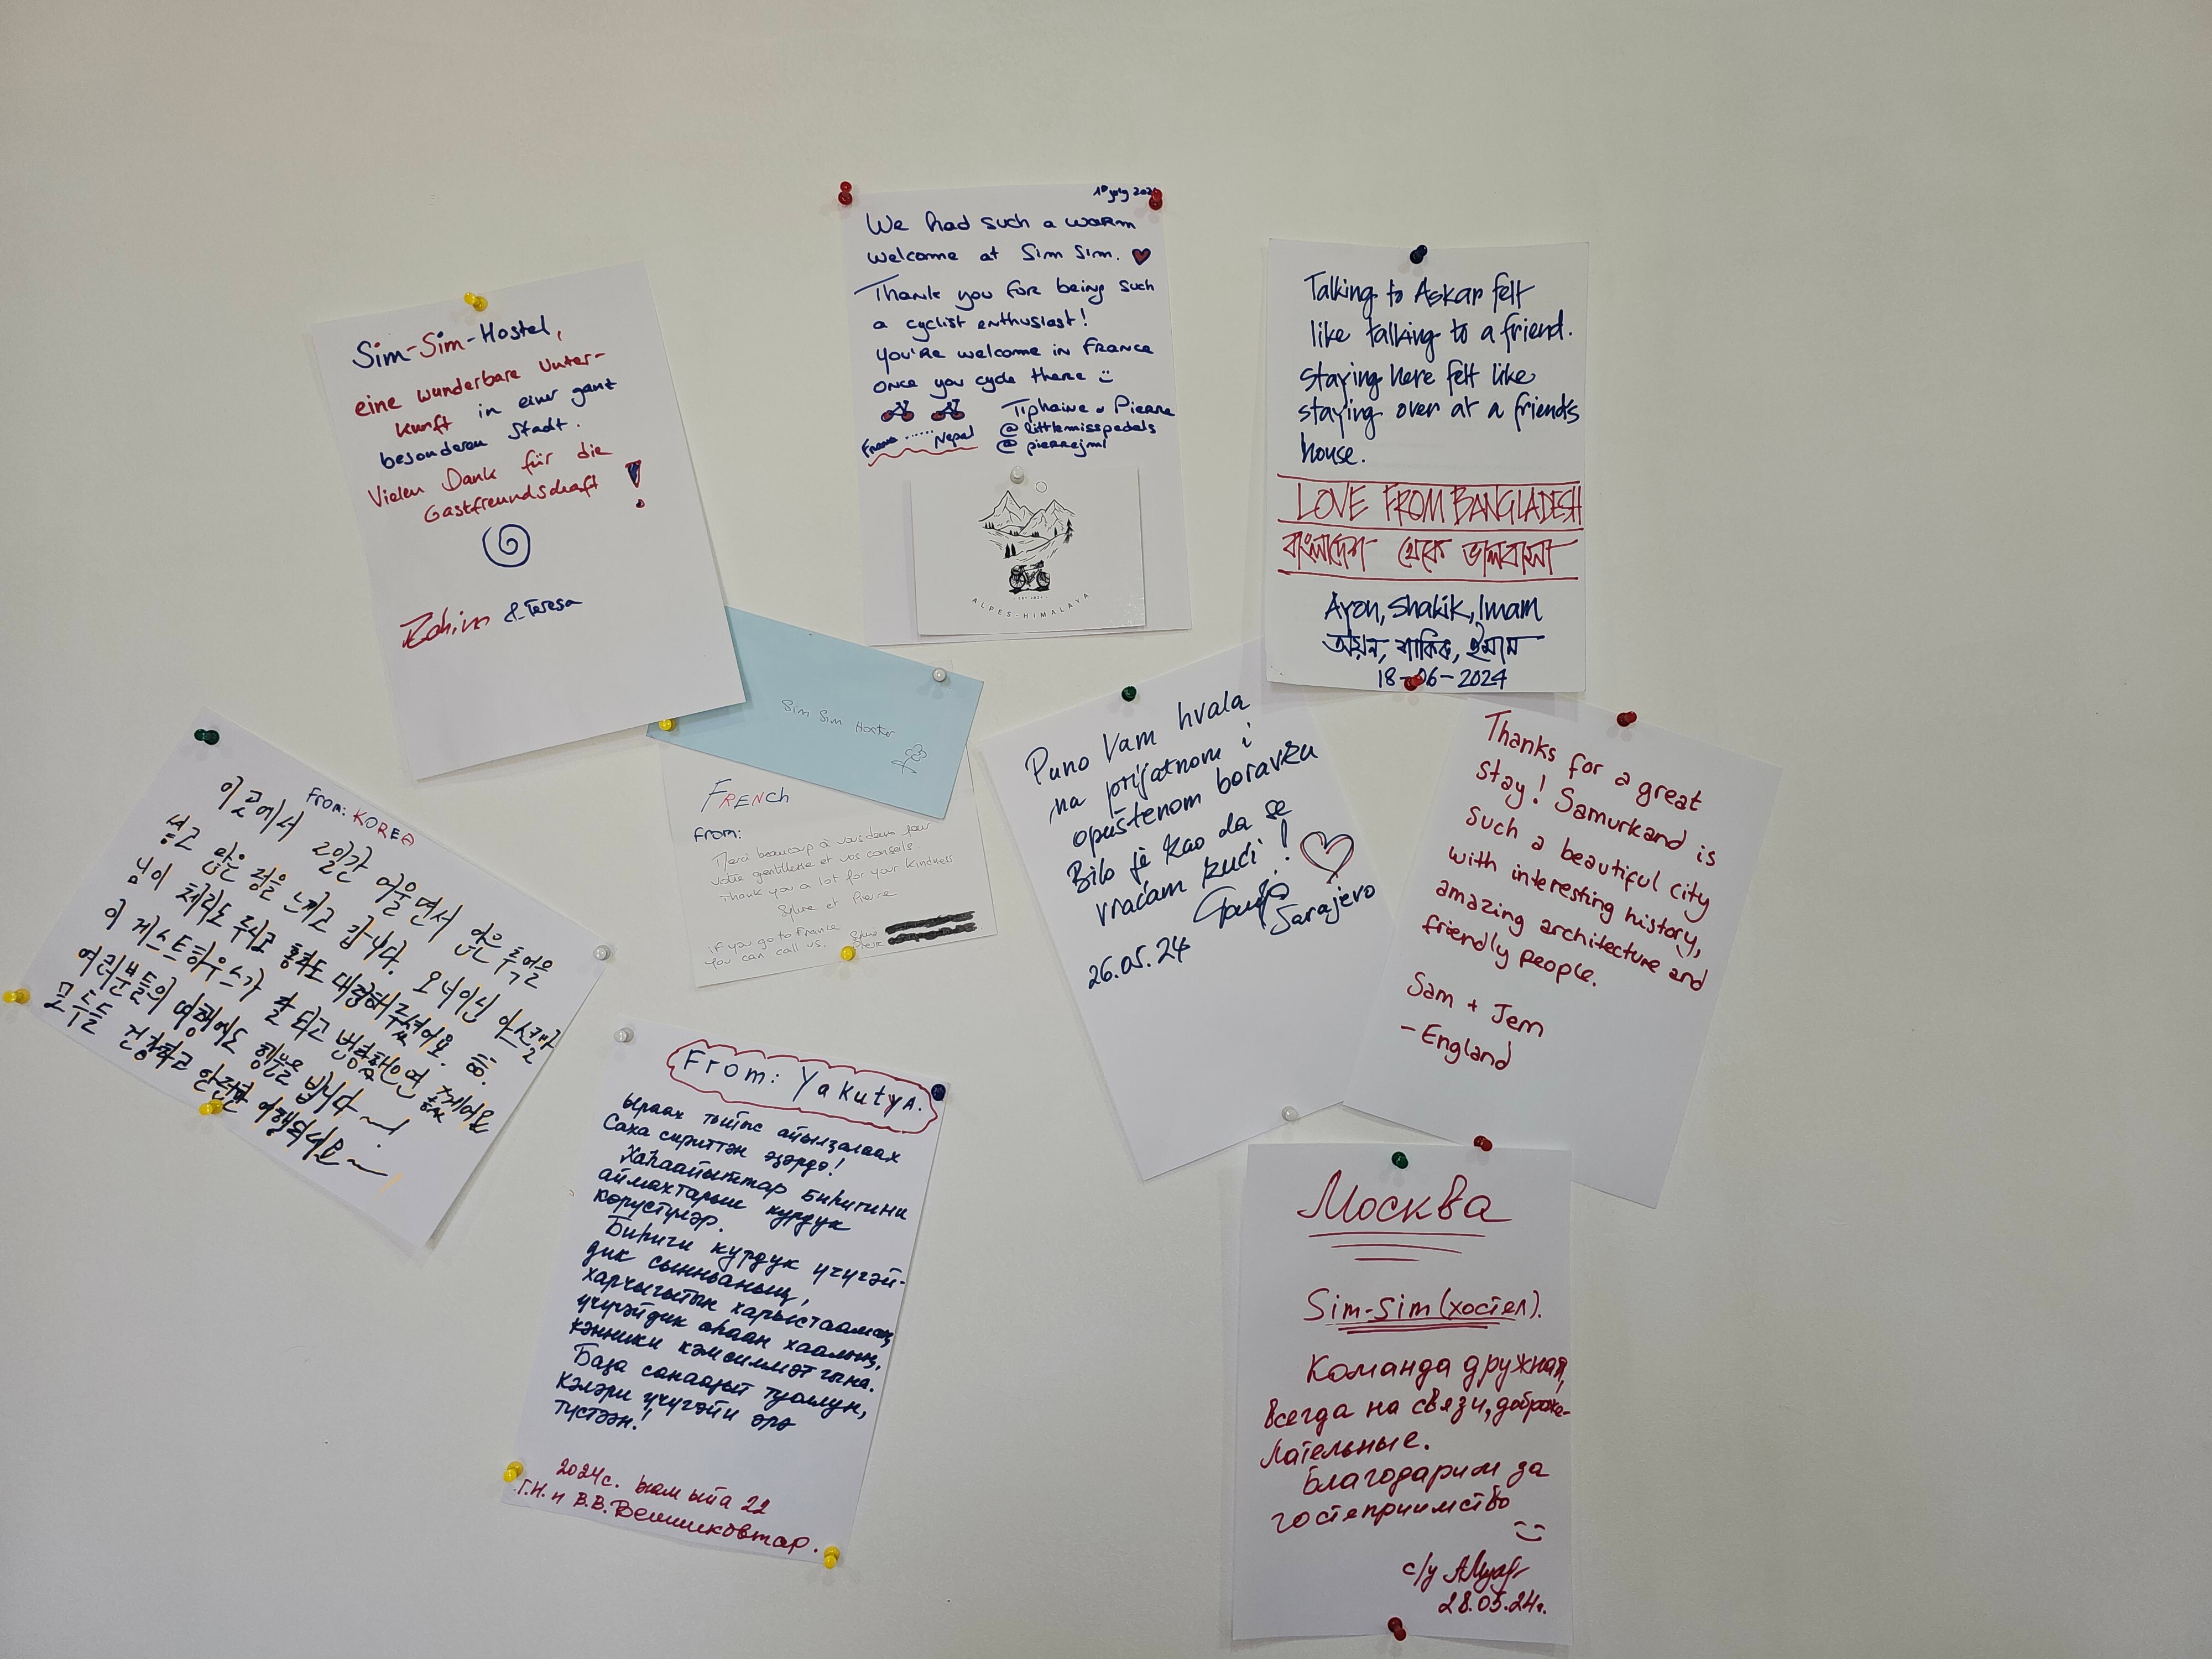 1st july 2024
We had such a warm
welcome at Sim Sim.
Thank you for being such
a cyclist enthusiast!
you're welcome in France
once you cycle there
Tiphaine & Pierre
@littlemisspedals
@pierrejml
France ...... Nepal
ALPES-HIMALAYA
Talking to Askar felt
like talking to a friend.
Staying here felt like
staying over at a friends
house.
LOVE FROM BANGLADESH
বাংলাদেশ থেকে ভালবাসা
Ayon, Shakik, Imam
অয়ন, শাকিক, ইমাম
18-06-2024
Sim-Sim-Hostel,
eine wunderbare Unter-
kunft in einer ganz
besonderen Stadt.
Vielen Dank für die
Gastfreundschaft !
& Teresa
Sim Sim Hoster
FRENCH
From:
Merci beaucoup à vous deux pour
votre gentillesse et vos conseils
Thank you a lot for your kindness
Sylvie et Pierre
if you go to France
You can call us.
Puno Vam hvala
na prijatnom i
opuštenom boravku
Bilo je kao da se
vraćam kući!
Sarajevo
26.05.24
Thanks for a great
stay! Samurkand is
such a beautiful city
with interesting history,
amazing architecture and
friendly people.
Sam + Jem
- England
From: KOREA
이곳에서 2일간 머물면서 많은 추억을
쌓고 많은 정을 느끼고 갑니다. 오너이신
님이 체리도 주시고 홍차도 대접해주셨어요.
이 게스트하우스가 잘 되고 번창했으면
여러분들의 여행에도 행운을 빕니다~~!
모두들 건강하고 안전한 여행되세요~
From: Yakutya.
Ыраах тыйыс айылҕалаах
Саха сириттэн эҕэрдэ!
Хаһаайыттар биһигини
аймахтарын курдук
көрүстүлэр.
Биһиги курдук үчүгэй-
дик сынньаныҥ,
харчыгытын харыстааҥ,
үчүгэйдик оһаан хаалыҥ,
кэнники кэмсиммэт гына.
Баҕа санааҕыт туоллун,
кэлэри үчүгэйи эрэ
түстээн!
2024с. ыам ыйа 22
Г.Н. и В.В. Вешниковтар.
Москва
Sim-Sim (хостел).
Команда дружная,
всегда на связи, доброже-
лательные.
Благодарим за
гостеприимство
с/у
28.05.24г.